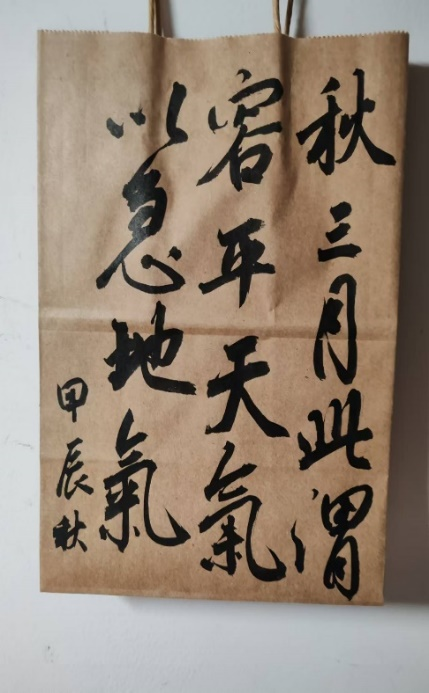 秋三月此谓
容平天氣
以急地氣
甲辰秋